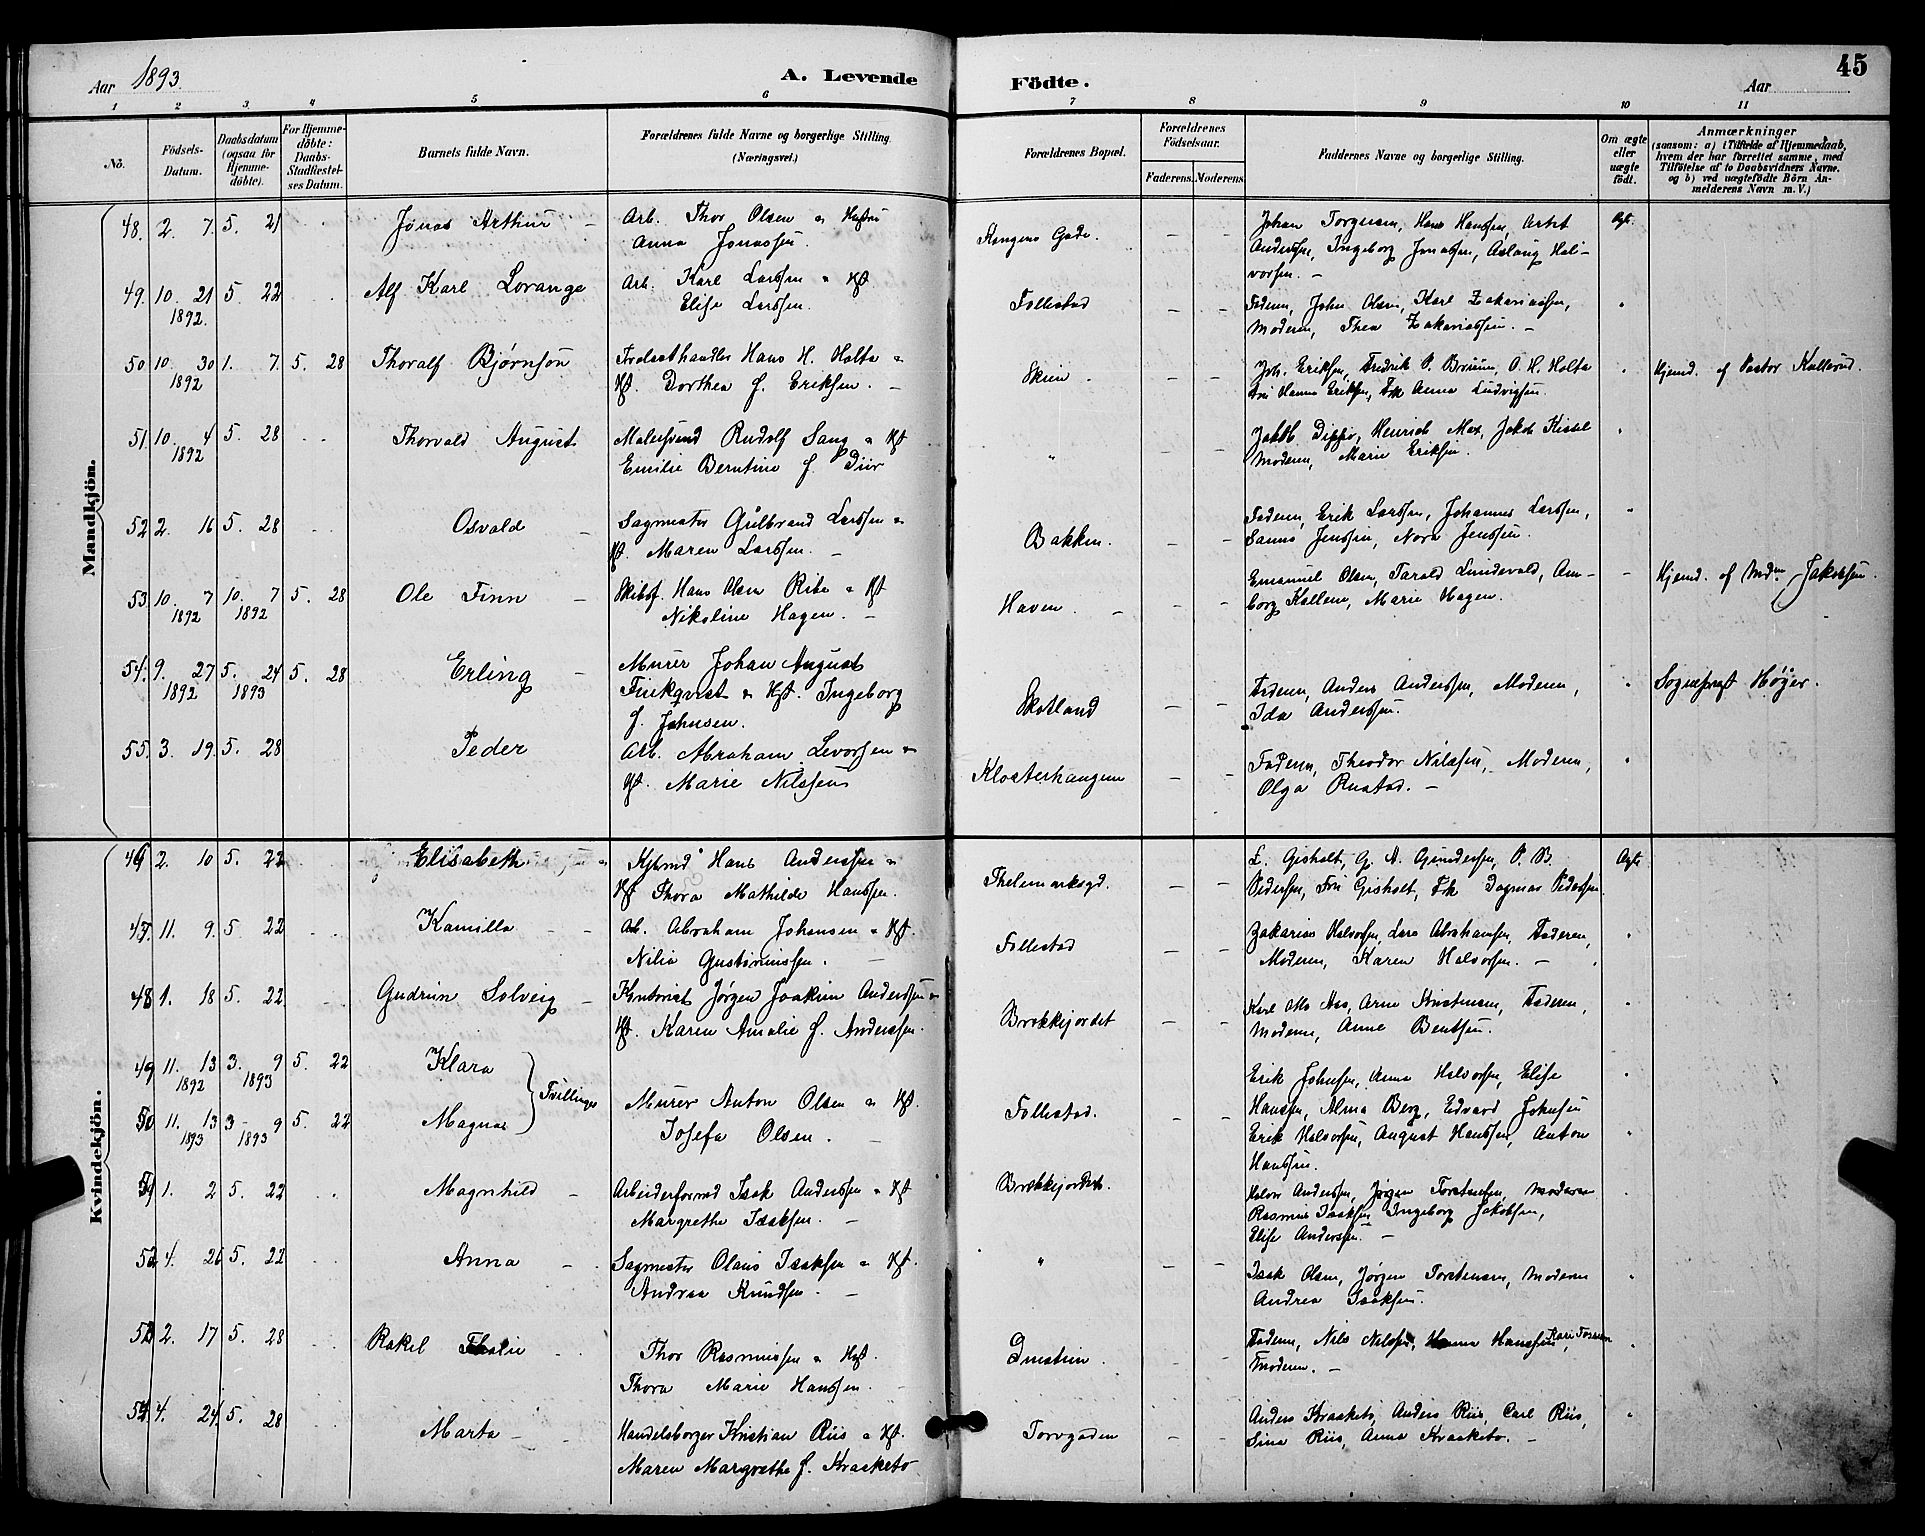 Aar 1893.
A. Levende
Födte.
Aar
45
1 2 3 4 5 6 7 8 9 10 11
No.
Födsels-Datum.
Daabsdatum (ogsaa for Hjemmedöbte).
For Hjemmedöbte: Daabs-Stadfæstelses Datum.
Barnets fulde Navn.
Forældrenes fulde Navne og borgerlige Stilling. (Næringsvei.)
Forældrenes Bopæl.
Forældrenes Födselsaar.
Faderens. Moderens.
Faddernes Navne og borgerlige Stilling.
Om ægte eller uægte födt.
Anmærkninger
(saasom: a) i Tilfælde af Hjemmedaab, hvem der har forrettet samme, med Tilföielse af to Daabsvidners Navne. og b) ved uægtefödte Börn Anmelderens Navn m. V.)
Mandkjön.
48. 2. 7. 5. 21 Jonas Arthur Arb. Thor Olsen & Hustru
Anna Jonassen. Gade. Johan Torgersen, Hans Hanssen,
Anderssen, Ingeborg Jonassen, Aslaug Hal-
vorsen. —
49. 10. 21 5. 22 Alf Karl Lorange Arb. Karl Larssen & Hst
1892. Elise Larssen. Follestad Faderen, John Olsen, Karl Zakariassen,
Moderen, Thea Zakariassen. —
50 10. 30 1. 7. 5. 28 Thoralf Bjørnson Trelasthandler Hans H. Holta &
1892 Hst. Dorthea f. Eriksen. — Skien Joh. Eriksen, Fredrik P. Bruun, O. H. Holta
Fru Hanna Eriksen, Frk Anna Ludvigsen. Hjemd. af Pastor
51. 10. 4 5. 28 Thorvald August Malersvend Rudolf Sang & Hst
1892 Emilie Berntine f. " Jakob Henrich Max, Jakob
Moderen, Marie Eriksen.
52 2. 16 5. 28 Osvald Sagmester Gulbrand Larssen &
Hst. Maren Larssen. — Bakken. Faderen, Erik Larssen, Johannes Larssen,
Sanna Jenssen, Nora Jenssen.
53. 10. 7 10. 7 5. 28 Ole Finn Skibsf. Hans Olsen Ribe & Hst
1892 1892 Nikoline Hagen. — Haven. Emanuel Olsen, Tarald Lundevald, Am-
borg Marie Hagen. Hjemd. af Mdm Jakobsen.
54. 9. 27 5. 24 5. 28 Erling Murer Johan August
1892 1893 & Hst. Ingeborg
f. Johnsen. Skotland Faderen, Anders Anderssen, Moderen,
Ida Anderssen. Sogneprest Høyer.
55. 3. 19. 5. 28 Peder Arb. Abraham Levorsen &
Hst. Marie Nilssen Klosterhaugen Faderen, Theodor Nilssen, Moderen,
Olga Rustad. —
Kvindekjön.
46 2. 10 5. 22 Elisabeth Hans Anderssen &
Hst Thora Mathilde Hanssen. Thelemarksgd. L. Gisholt, G. A. Gundersen, P. B.
Pedersen, Fru Gisholt, Frk Dagmar Pederssen Ægte
47. 11. 9. 5. 22 Kamilla Arb. Abraham Johansen & Hst.
Nilia Follestad Zakarias Halvorsen, Lars Abrahamsen, Faderen,
Moderen, Karen Halvorsen. —
48 1. 18 5. 22 Gudrun Solveig Kontorist Jørgen Joakim Anderssen &
Hst. Karen Amalie f. Anderssen. Brekkejordet Karl Arne Kristensen, Faderen,
Moderen, Anne Bentsen.
49 11. 13 3. 9 5. 22 Klara
1892 1893 Tvillinger Erik Johnsen, Anna Halvorsen, Elise
Murer Anton Olsen & Hst. Follestad. Hanssen, Alma Berg, Edvard Johnsen
50 11. 13 3 9 5. 22 Magna
1893 1893 Josefa Olsen. — Erik Halvorsen, August Hanssen, Anton
Hanssen.
51 1. 2 5. 22 Magnhild Arbeiderformd Isak Anderssen & Hst
Margrethe Isaksen. — Brekkejordet. Halvor Anderssen, Jørgen Torstensen, Moderen
Rasmus Isaksen, Ingeborg Jakobsen,
Elise Anderssen. —
52 4. 26 5. 22 Anna Sagmester Olaus Isaksen & Hst.
Andrea Knudsen. — " Isak Olsen, Jørgen Torstensen, Moderen
Andrea Isaksen.
53 2. 17 5. 28 Rakel Thor Rasmussen & Hst.
Thora Marie Hanssen. Faderen, Nils Nilssen, Hanna Hanssen, Kari
Moderen. —
54. 4. 24 5. 28 Marta — Handelsborger Kristian Riis & Hst.
Maren Margrethe f. Kraaketo Torvgaden Anders Kraaketo, Anders Riis, Carl Riis,
Sina Riis, Anna Kraaketo. —